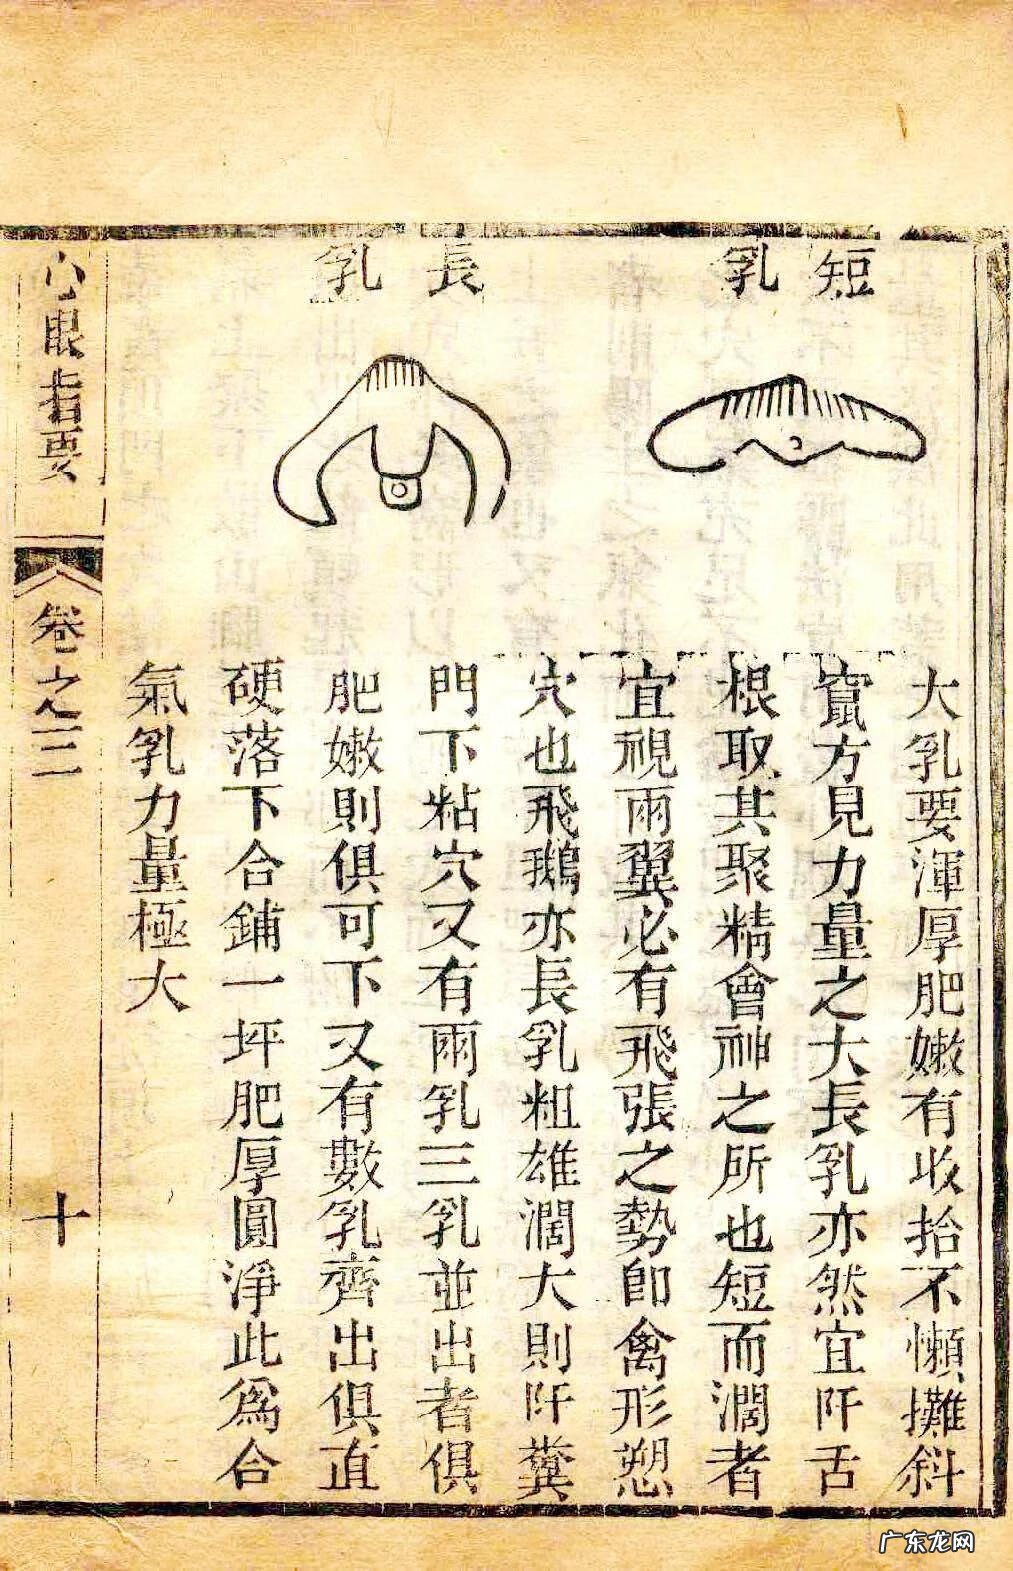 短乳
長乳
大乳要渾厚肥嫩有收拾不懶攤斜
竄方見力量之大長乳亦然宜阡舌
根取其聚精會神之所也短而濶者
宜視兩翼必有飛張之勢卽禽形愬
穴也飛鵝亦長乳粗雄濶大則阡糞
門下粘穴又有兩乳三乳並出者俱
肥嫩則俱可下又有數乳齊出俱直
硬落下合鋪一坪肥厚圓淨此爲合
氣乳力量極大
心眼指要
卷之三
十
广东龙网